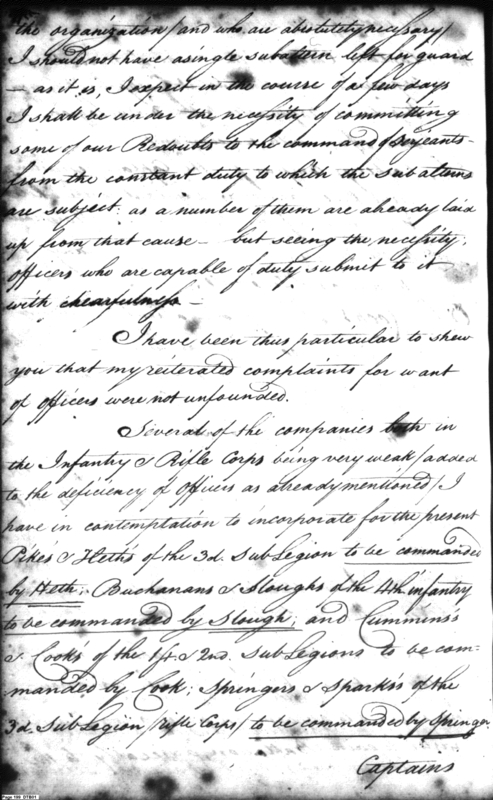 the organization / and who are absolutely necessary /
I should not have a single subaltern left for guard
— as it is, I expect in the course of a few days
I shall be under the necessity of committing
some of our Redoubts to the command of Serjeants -
from the constant duty to which the subalterns
are subject. as a number of them are already laid
up from that cause — but seeing the necessity,
officers who are capable of duty submit to it
with chearfulness —
I have been thus particular to shew
you that my reiterated complaints for want
of officers were not unfounded.
Several of the companies both in
the Infantry & Rifle Corps being very weak / added
to the deficiency of officers as already mentioned / I
have in contemplation to incorporate for the present
Pike's & Heth's of the 3d. Sub Legion to be commanded
by Heth; Buchanans & Sloughs of the 4th infantry
to be commanded by Slough; and Cummins's
& Cook's of the 1st & 2nd. Sub Legions to be com-
manded by Cook; Springers & Sparks's of the
3d. Sub Legion / rifle Corps / to be commanded by Springer
Captains